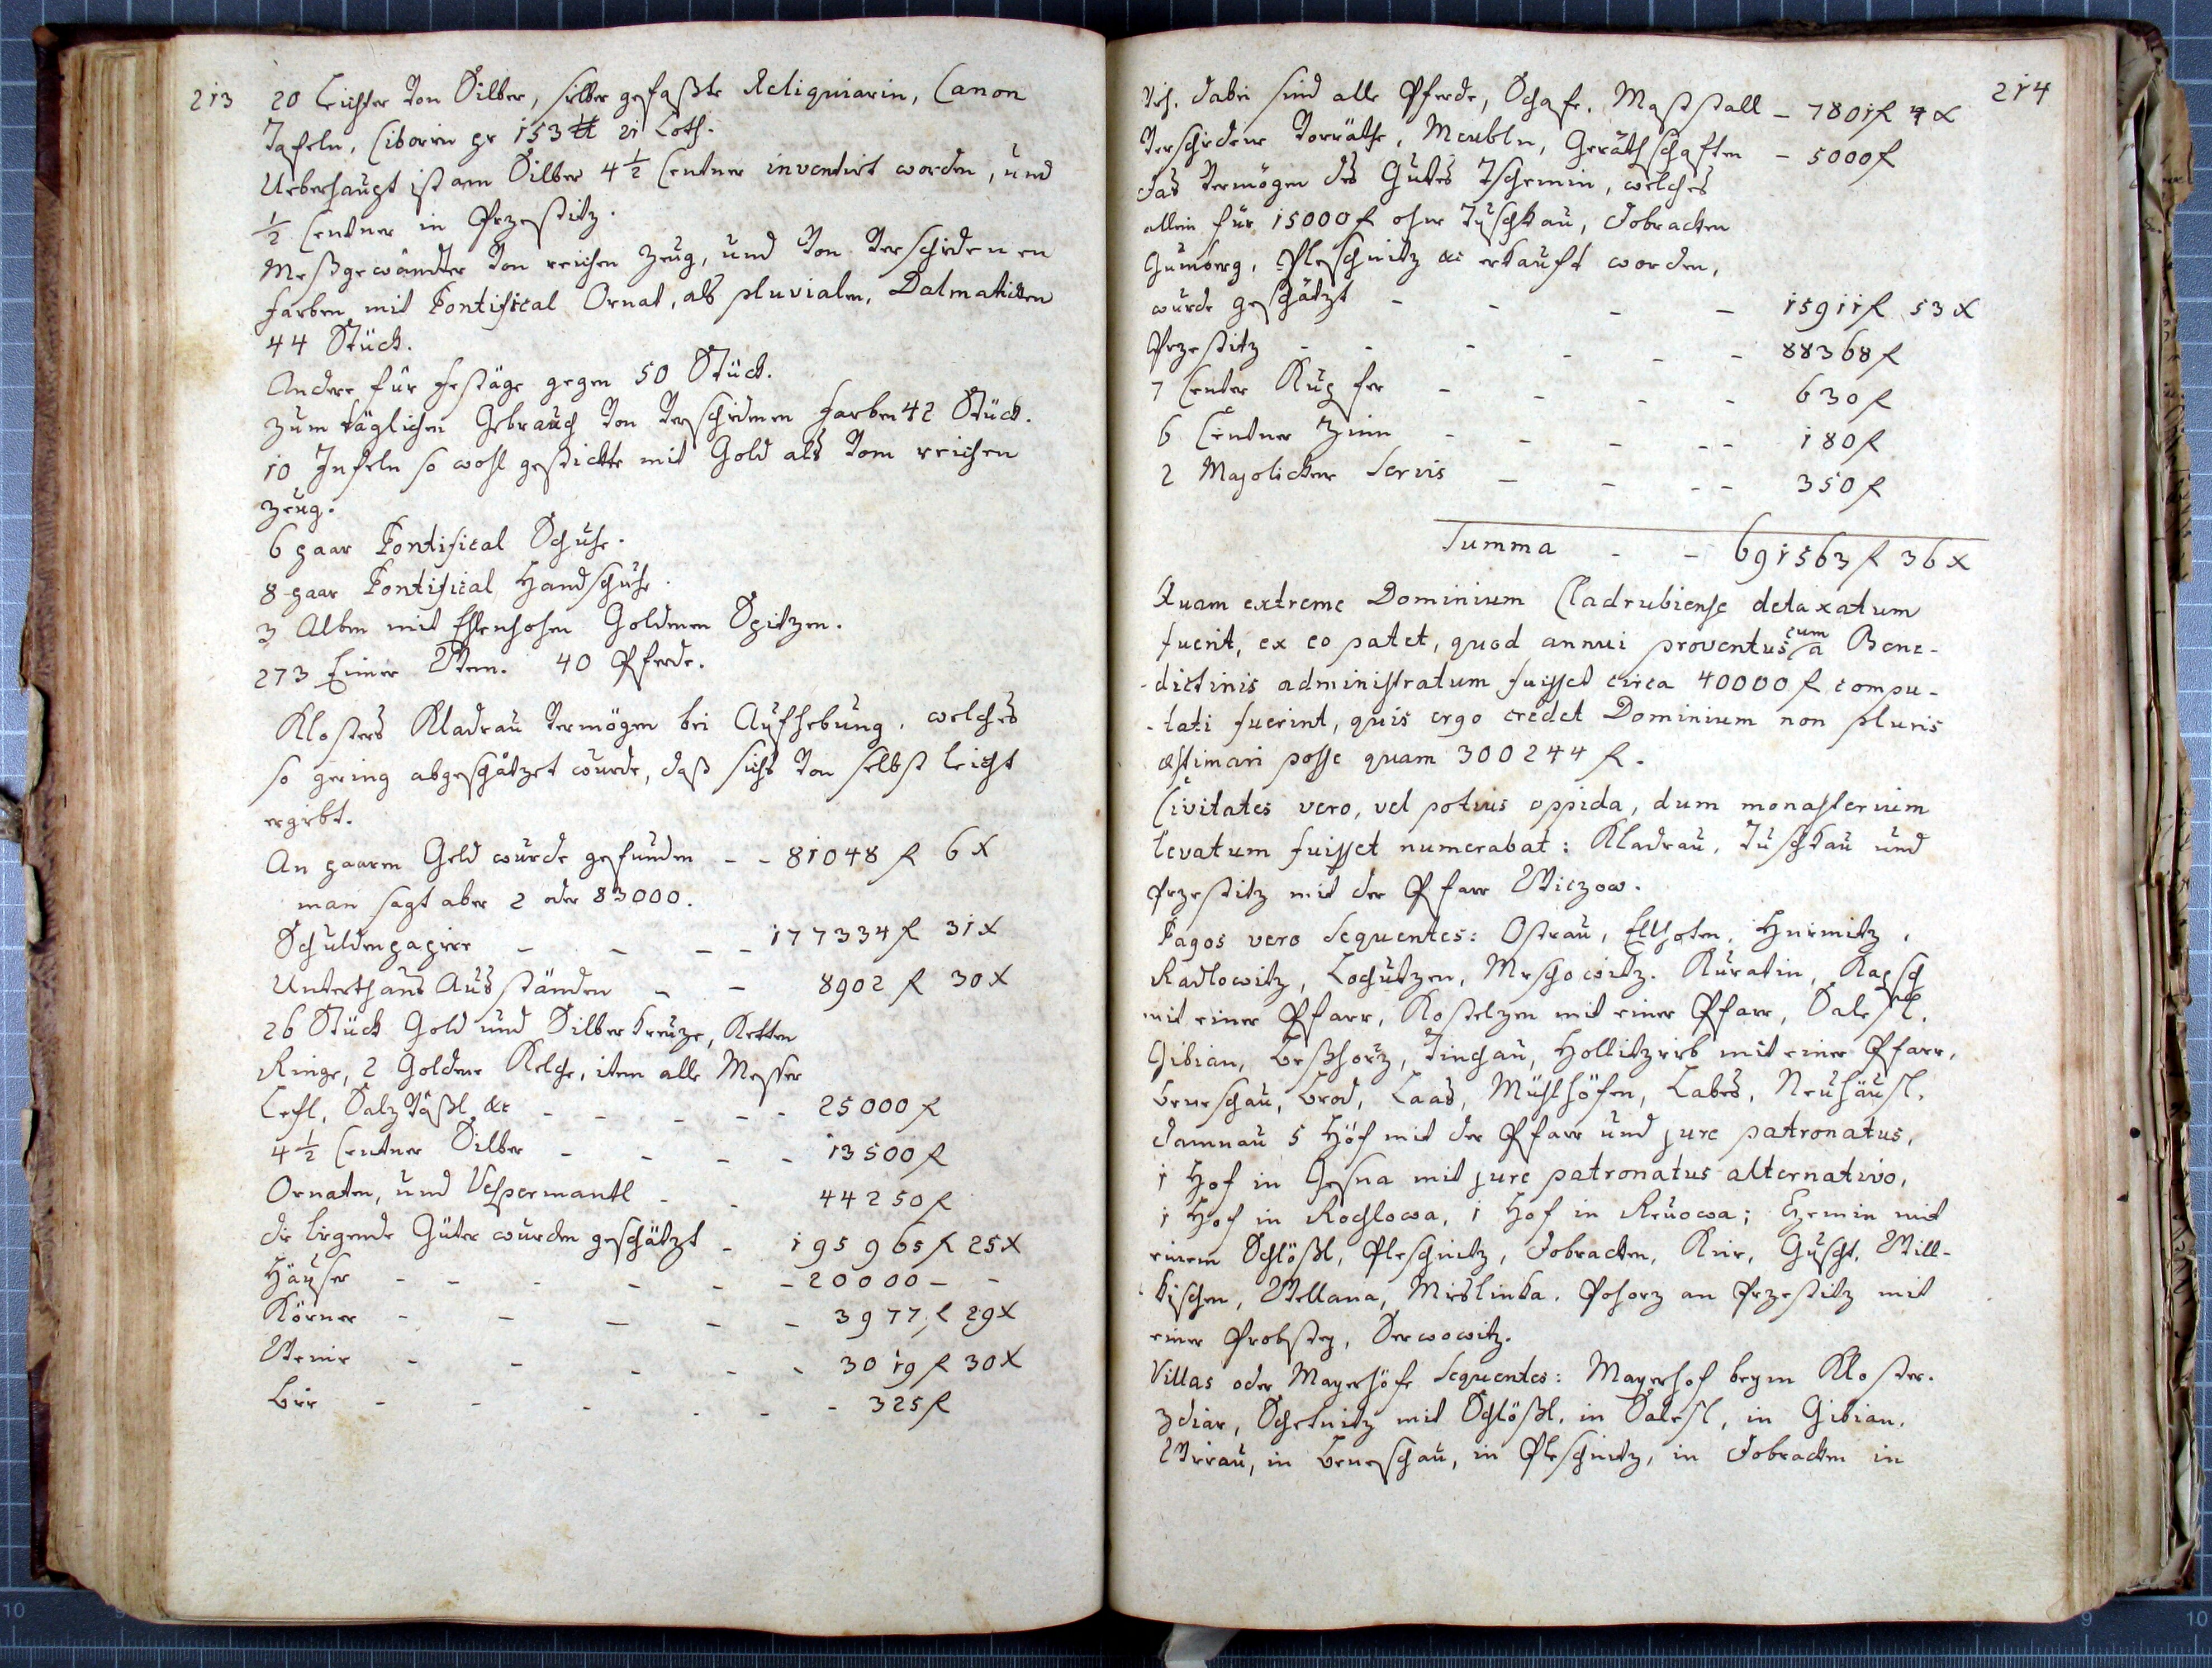 213
20 Leichter von Silber, silber gefaßte Reliquiarien, Canon
Tafeln, Ciborien pr 153 ℔ 21 Loth.
Ueberhaupt ist am Silber 4 1/2 Centner inventirt worden, und
1/2 Centner in Przestitz.
Meßgewändter von reichen Zeug, und von verschidenen
Farben mit Pontifical Ornat, als pluvialen, Dalmaticken
44 Stück.
Andere für Festäge gegen 50 Stück.
Zum täglichen Gebrauch von verschidenen Farben 42 Stück.
10 Infeln so wohl gestickte mit Gold als vom reichen
Zeug.
6 paar Pontifical Schuhe.
8 paar Pontifical Handschuhe.
3 Alben mit Ehlenhohen Goldenen Spitzen.
273 Eimer Wein. 40 Pferde.
Klosters Kladrau Vermögen bei Aufhebung, welches
so gering abgeschätzet wurde, daß sichs von selbst leicht
ergiebt.
An paaren Geld wurde gefunden - - 81048 f 6 x
man sagt aber 2 oder 83000.
Schuldenpapiere - - - - 177334 f 31 x
Unterthans Ausständen - - 8902 f 30 x
26 Stück Gold und Silber Kreuze, Ketten
Ringe, 2 Goldene Kelche, item alle Messer
Lefl, Salz Väßl &c - - - - - 25000 f
4 1/2 Centner Silber - - - - 13500 f
Ornaten, und Vespermantl - - 44250 f
die liegende Güter wurden geschätzt - 195965 f 25 x
Häuser - - - - - - 20000 - -
Körner - - - - - 3977 f 29 x
Weine - - - - - 3019 f 30 x
Bier - - - - - - 325 f
214
Vieh, dabei sind alle Pferde, Schafe, Maststall - 7801 f 4 x
Verschidene Vorräthe, Meubln, Geräthschaften - 5000 f
das Vermögen des Gutes Tschemin, welches
allein für 15000 f ohne Tuschkau, Dobracken
Gumberg, Pleschnitz &c erkauft worden,
wurde geschätzt - - - - 15911 f 53 x
Przestitz - - - - - - 88368 f
7 Center Kupfer - - - - 630 f
6 Centner Zinn - - - - - 180 f
2 Majolickene Servis - - - - 350 f
Summa - - 691563 f 36 x
Quam extreme Dominium Cladrubiense detaxatum
fuerit, ex eo patet, quod annui proventus cum a Bene-
-dictinis administratum fuisset circa 40000 f compu-
-tati fuerint, quis ergo credet Dominium non pluris
æstimari posse quam 300244 f.
Civitates vero, vel potius oppida, dum monasterium
levatum fuisset numerabat: Kladrau, Tuschkau und
Przestitz mit der Pfarr Wiczow.
Pagos vero Sequentes: Ostrau, Ellhoten, Hniemitz,
Radlowitz, Lochutzen, Meschowitz, Kuratin, Kapsch
mit einer Pfarr, Kostelzen mit einer Pfarr, Salesl,
Gibian, Beßhorz, Tinchau, Hollitzrieb mit einer Pfarr,
Beneschau, Brod, Laas, Mühlhöfen, Labes, Neuhäusl,
Damnau 5 Höf mit der Pfarr und jure patronatus,
1 Hof in Gesna mit jure patronatus alternativo,
1 Hof in Rochlowa, 1 Hof in Reuowa; Czemin mit
einem Schlößl, Pleschnitz, Dobracken, Knie, Guscht, Will-
-kischen, Wellana, Mieslinka, Pohorz an Przestitz mit
einer Probstey, Serwowitz.
Villas oder Mayerhöfe Sequentes: Mayerhof beym Kloster.
Zdiar, Schetnitz mit Schlößl, in Salesl, in Gibian,
Wirau, in Beneschau, in Pleschnitz, in Dobracken in